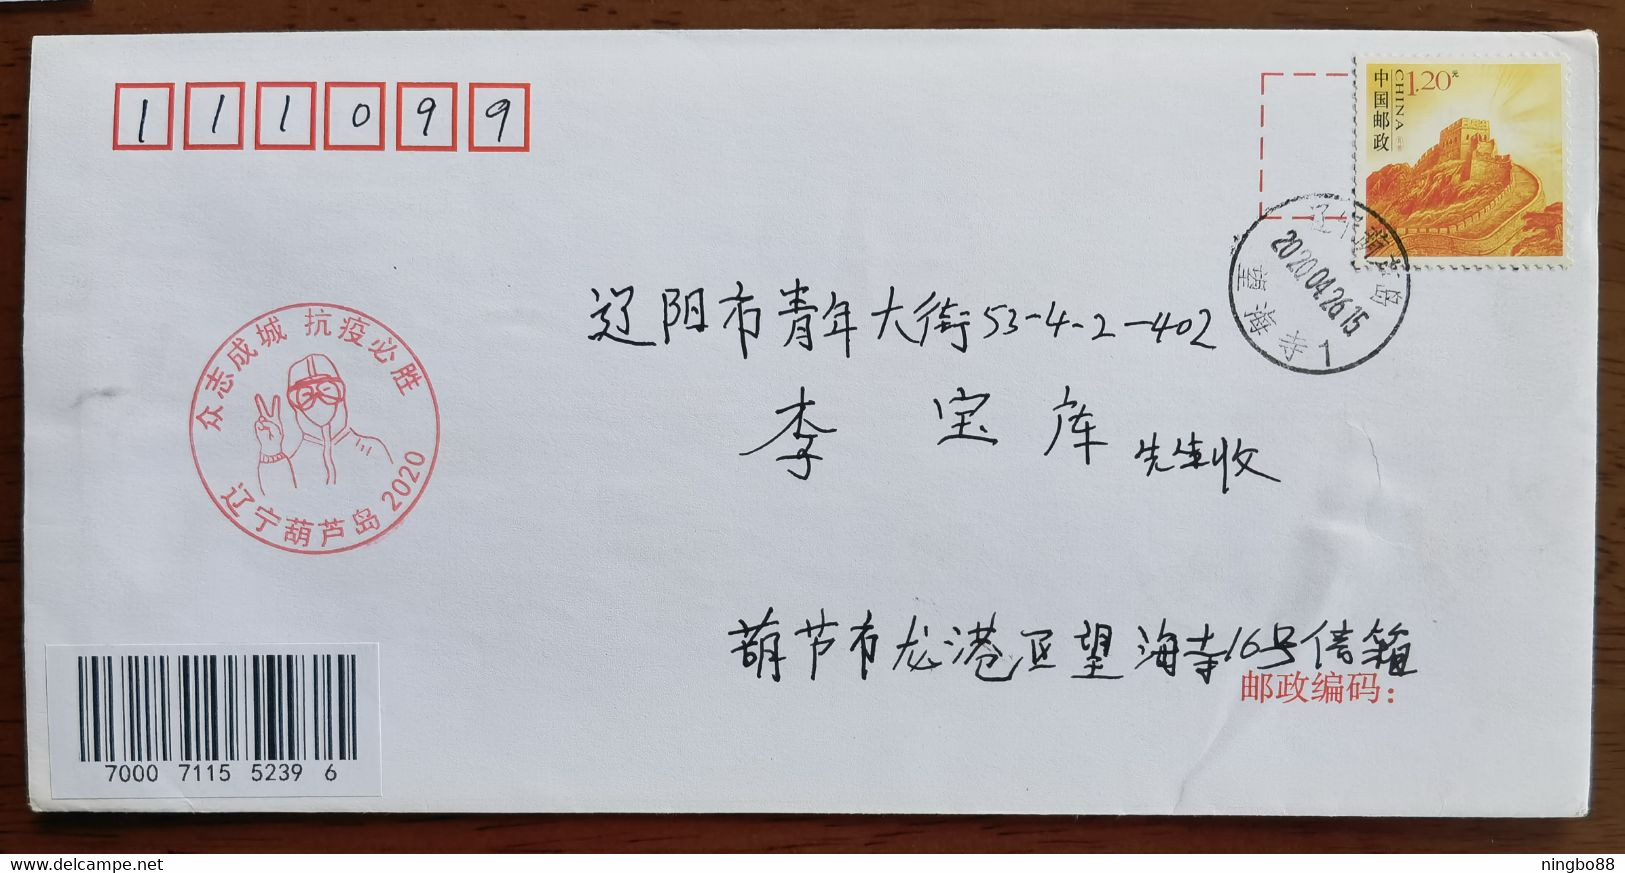 111099
中国邮政
CHINA
1.20元
辽宁葫芦岛
2020.04.26.15
望海寺 1
辽阳市青年大街53-4-2-402
李宝库 先生收
众志成城 抗疫必胜
辽宁葫芦岛 2020
葫芦市龙港区望海寺16号信箱
邮政编码：
7000 7115 5239 6
delcampe.net
ningbo88